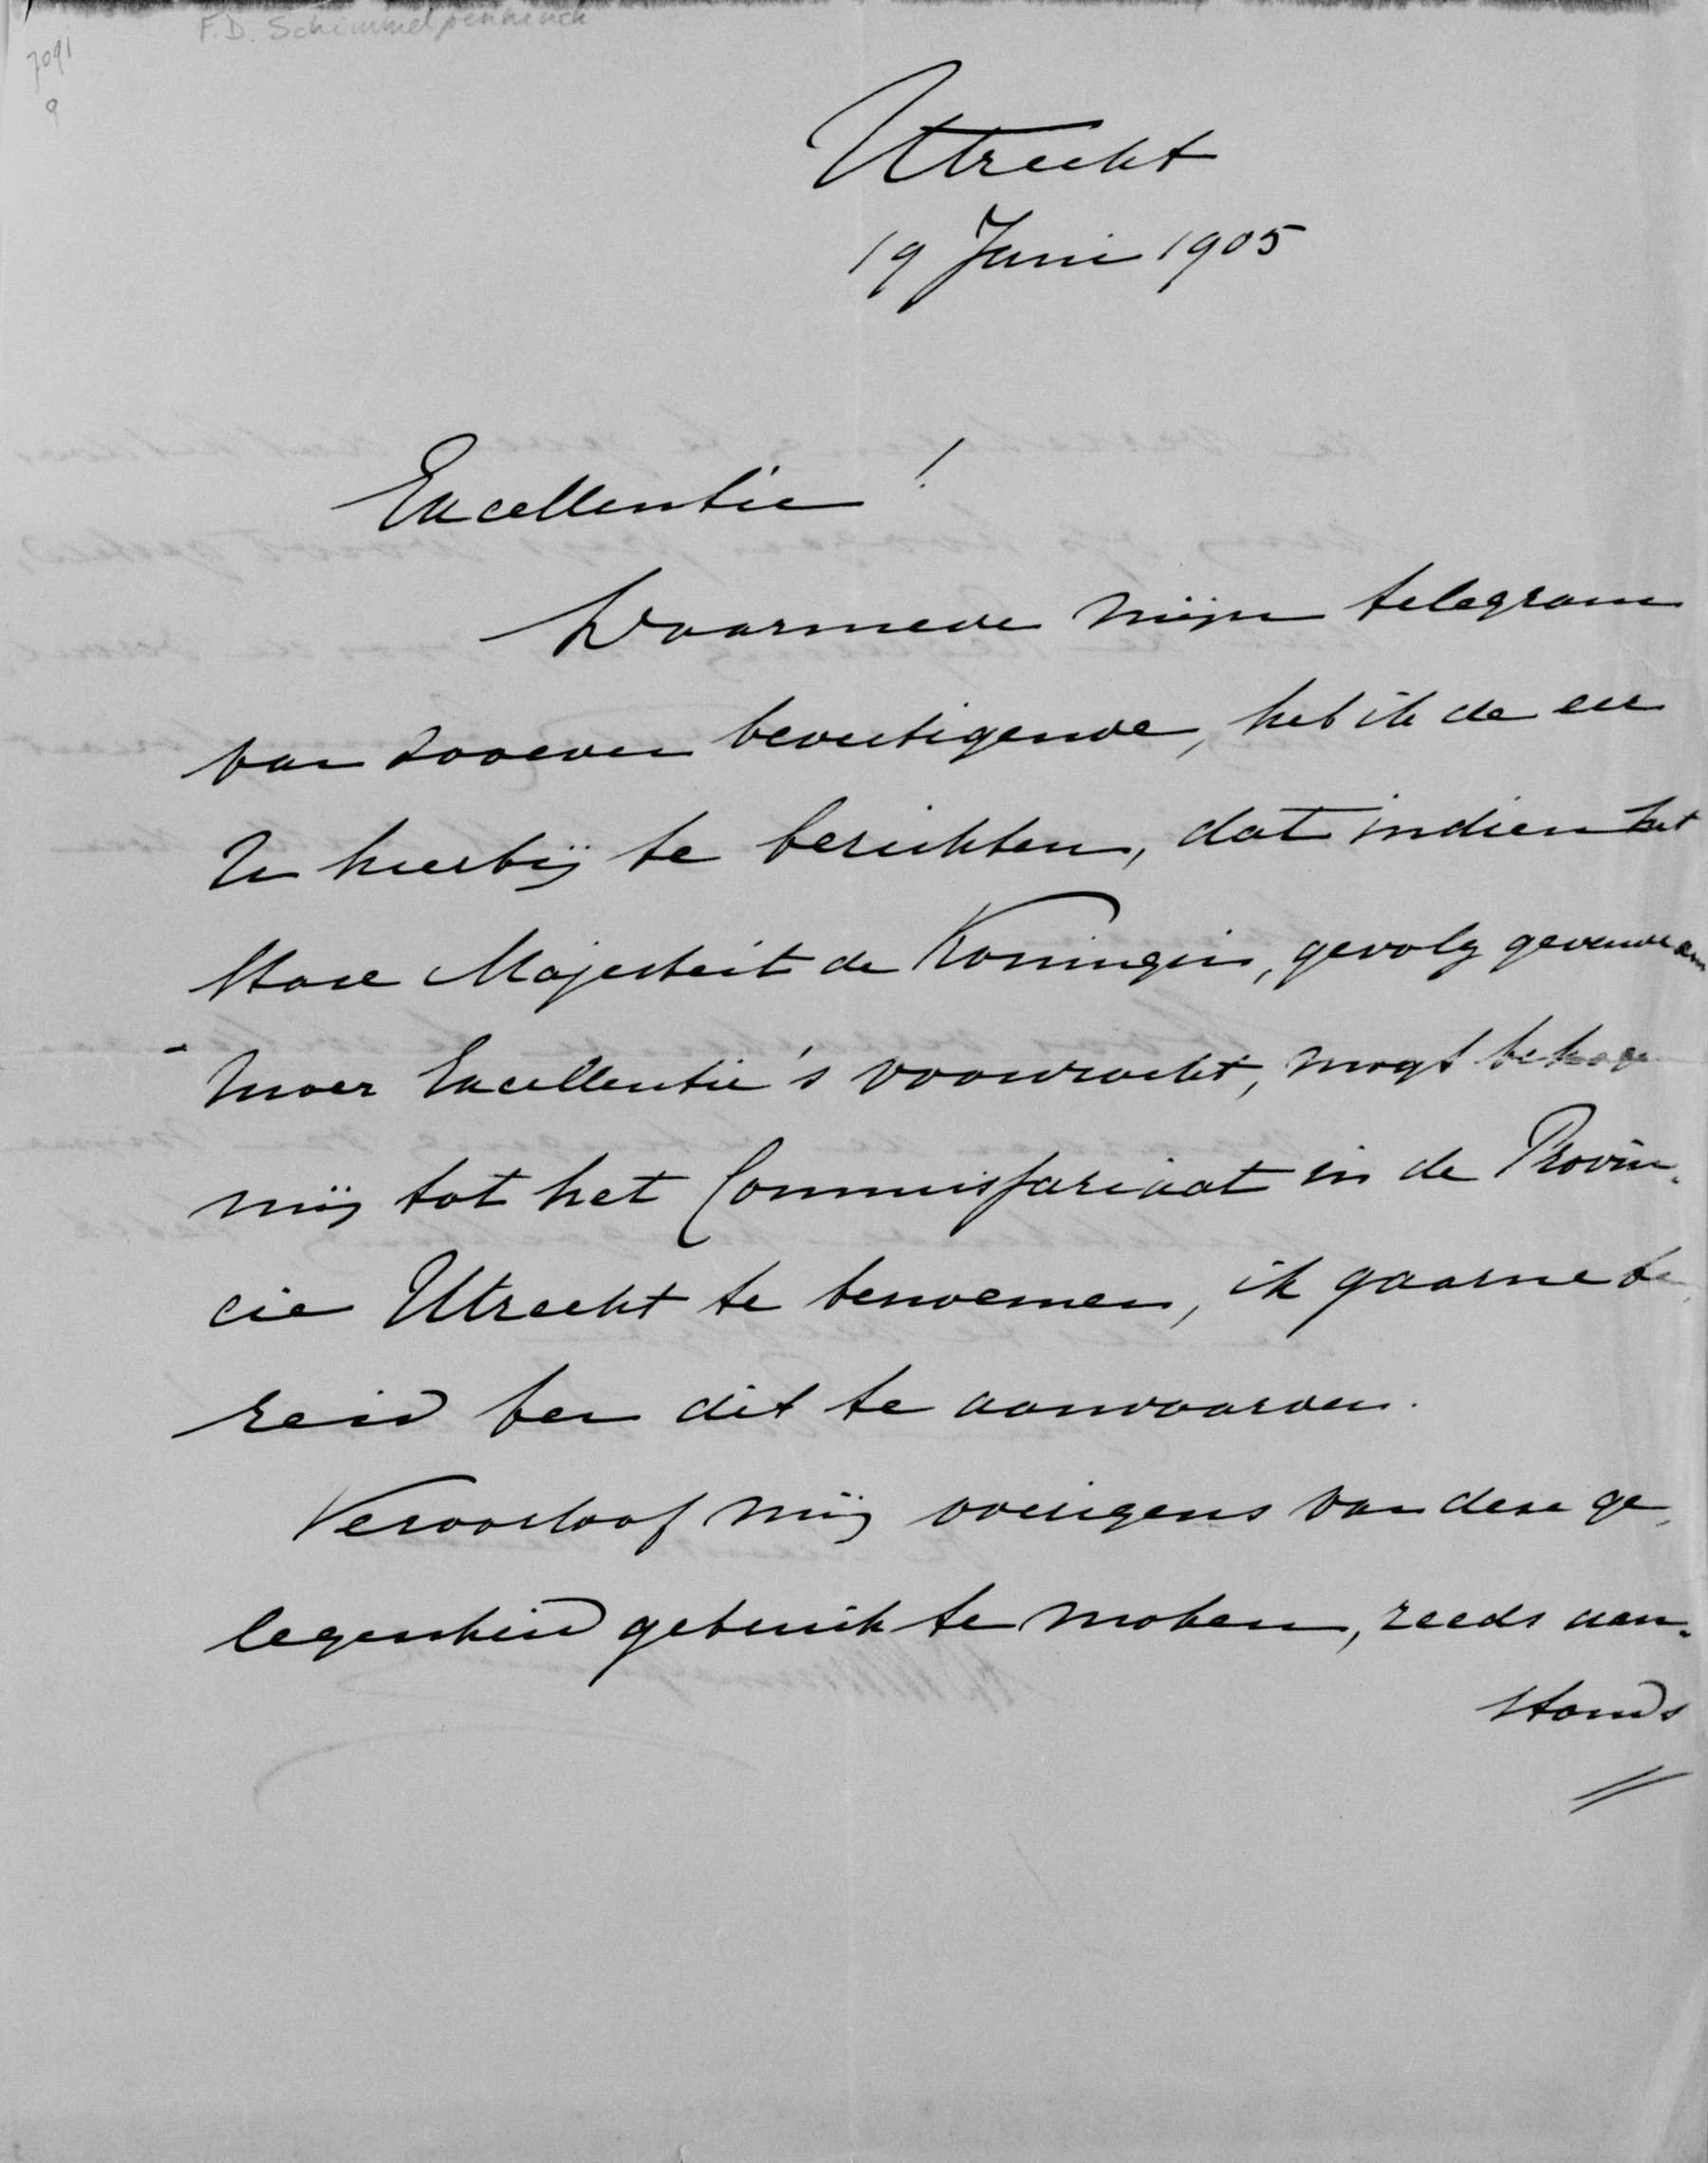 F.D. Schimmelpenninck
7091
9
Utrecht
19 Juni 1905
Excellentie!
Waarmede mijn telegram
van zooeven bevestigende, heb ik de eer
U hierbij te berichten, dat indien het
Hare Majesteit de Koningin, gevolg gevende aan
Uwer Excellentie's voordracht, mogt behage
mij tot het Commissariaat in de Provin-
cie Utrecht te benoemen, ik gaarne be-
reid ben dit te aanvaarden.
Veroorloof mij overigens van deze ge-
legenheid gebruik te maken, reeds aan-
stonds